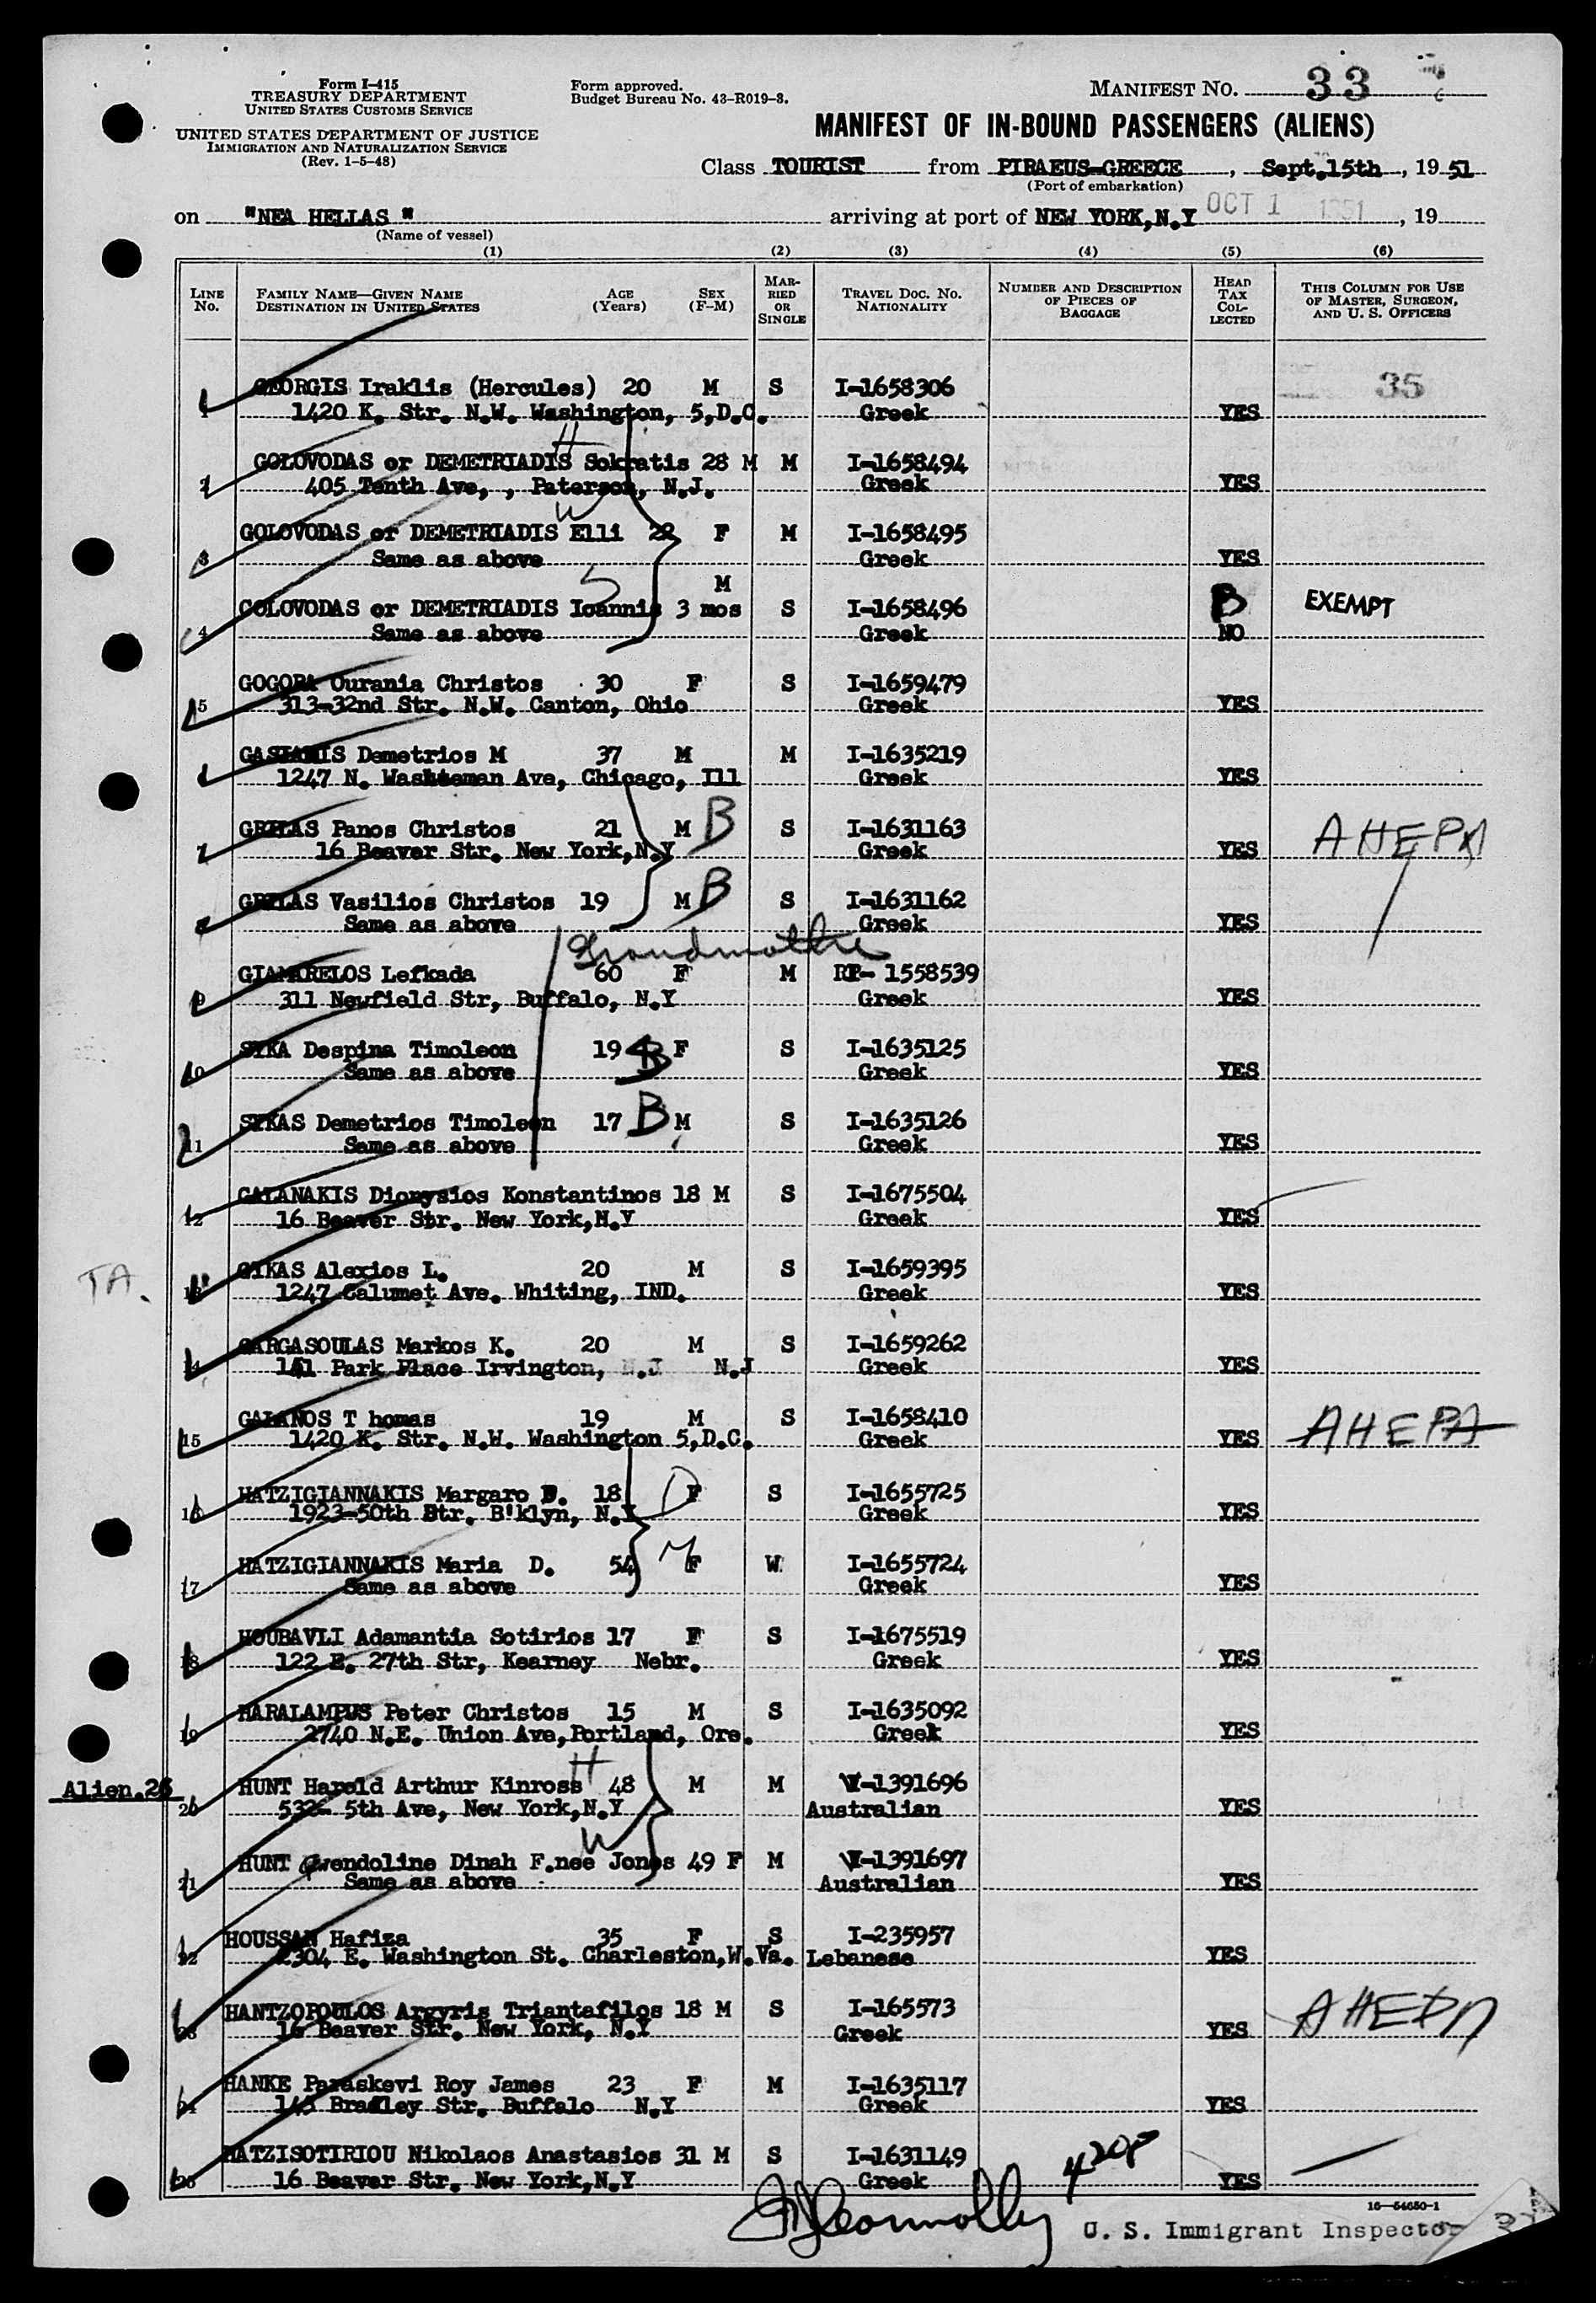 Form I-415
TREASURY DEPARTMENT
UNITED STATES CUSTOMS SERVICE
UNITED STATES DEPARTMENT OF JUSTICE
IMMIGRATION AND NATURALIZATION SERVICE
(Rev. 1-5-48)
Form approved.
Budget Bureau No. 43-R019-3.
MANIFEST NO. 33
MANIFEST OF IN-BOUND PASSENGERS (ALIENS)
Class TOURIST from PIRAEUS-GREECE, Sept.15th, 19 51
(Port of embarkation)
on "NEA HELLAS " arriving at port of NEW YORK,N.Y OCT 1 1951, 19
(Name of vessel)
(1) (2) (3) (4) (5) (6)
LINE No. FAMILY NAME—GIVEN NAME DESTINATION IN UNITED STATES AGE (Years) SEX (F-M) MARRIED OR SINGLE TRAVEL DOC. NO. NATIONALITY NUMBER AND DESCRIPTION OF PIECES OF BAGGAGE HEAD TAX COLLECTED THIS COLUMN FOR USE OF MASTER, SURGEON, AND U. S. OFFICERS
1 GEORGIS Iraklis (Hercules) 20 M S I-1658306 35
1420 K. Str. N.W. Washington, 5,D.C. Greek YES
H
2 GOLOVODAS or DEMETRIADIS Sokratis 28 M M I-1658494
405 Tenth Ave, , Paterson, N.J. Greek YES
W
3 GOLOVODAS or DEMETRIADIS Elli 22 F M I-1658495
Same as above Greek YES
S M
4 COLOVODAS or DEMETRIADIS Ioannis 3 mos S I-1658496 B EXEMPT
Same as above Greek NO
5 GOGORA Ourania Christos 30 F S I-1659479
313-32nd Str. N.W. Canton, Ohio Greek YES
Demetrios M 37 M M I-1635219
1247 N. Ave, Chicago, Ill Greek YES
7 Panos Christos 21 M B S I-1631163 AHEPA
16 Beaver Str. New York,N.Y Greek YES
Vasilios Christos 19 M B S I-1631162
Same as above Greek YES
Grandmother
9 GIAMARELOS Lefkada 60 F M RP- 1558539
311 Newfield Str, Buffalo, N.Y Greek YES
10 SYKA Despina Timoleon 19 B F S I-1635125
Same as above Greek YES
11 SYKAS Demetrios Timoleon 17 B M S I-1635126
Same as above Greek YES
12 GALANAKIS Dionysios Konstantinos 18 M S I-1675504
16 Beaver Str. New York,N.Y Greek YES
TA. 13 GIKAS Alexios L. 20 M S I-1659395
1247 Calumet Ave. Whiting, IND. Greek YES
14 GARGASOULAS Markos K. 20 M S I-1659262
141 Park Place Irvington, N.J N.J Greek YES
15 GALANOS T homas 19 M S I-1658410 AHEPA
1420 K. Str. N.W. Washington 5,D.C. Greek YES
16 HATZIGIANNAKIS Margaro D. 18 D F S I-1655725
1923-50th Str. B'klyn, N.Y Greek YES
17 HATZIGIANNAKIS Maria D. 54 M F W I-1655724
Same as above Greek YES
18 HOUBAVLI Adamantia Sotirios 17 F S I-1675519
122 E. 27th Str, Kearney Nebr. Greek YES
19 HARALAMPUS Peter Christos 15 M S I-1635092
2740 N.E. Union Ave,Portland, Ore. Greek YES
H
Alien.26 20 HUNT Harold Arthur Kinross 48 M M V-1391696
532- 5th Ave, New York,N.Y Australian YES
W
21 HUNT Gwendoline Dinah F.nee Jones 49 F M V-1391697
Same as above Australian YES
22 HOUSSAN Hafiza 35 F S I-235957
2304 E. Washington St. Charleston,W.Va. Lebanese YES
23 HANTZOPOULOS Argyris Triantafilos 18 M S I-165573 AHEPA
16 Beaver Str. New York, N.Y Greek YES
24 HANKE Paraskevi Roy James 23 F M I-1635117
145 Bradley Str. Buffalo N.Y Greek YES
25 HATZISOTIRIOU Nikolaos Anastasios 31 M S I-1631149
16 Beaver Str. New York,N.Y Greek YES
420P
Connolly U. S. Immigrant Inspector
16—54650-1